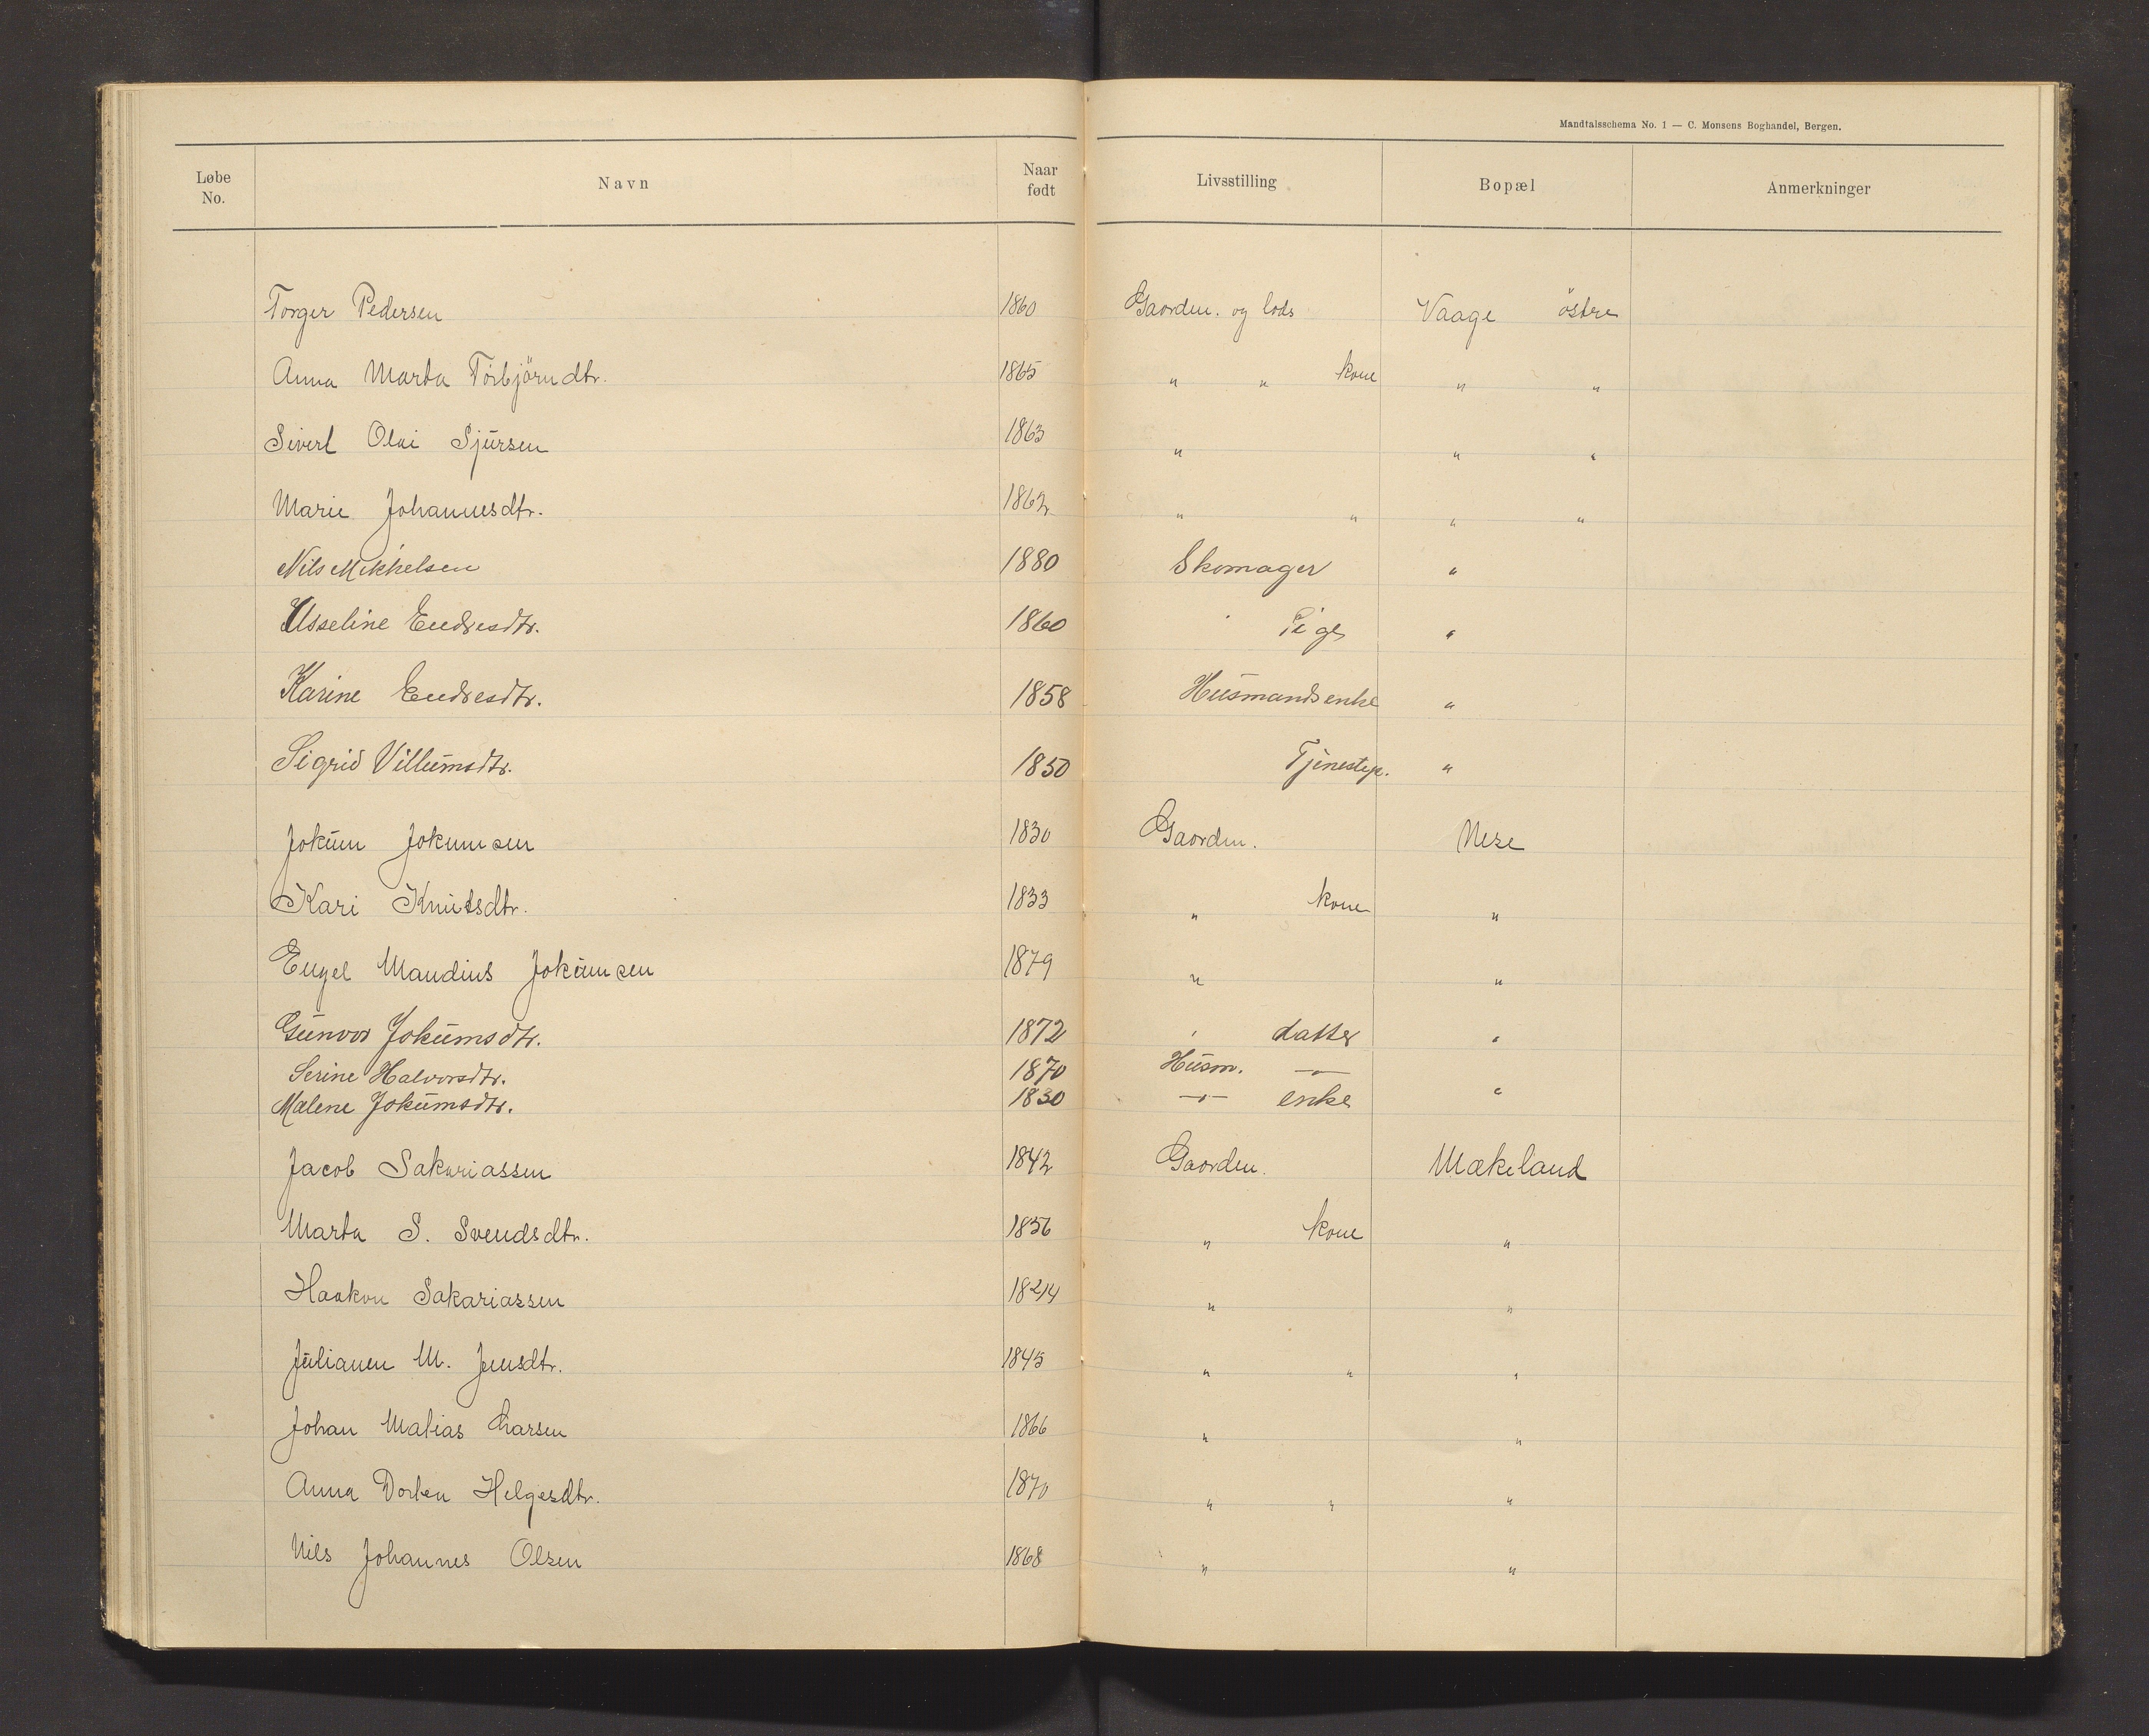 Mandtalsschema No. 1 — C. Monsens Boghandel, Bergen.
Løbe No. Navn Naar født Livsstilling Bopæl Anmerkninger
Torger Pedersen 1860 Gaarden. og lods Vaage östre
Anna Marta Torbjörndtr. 1865 " " kone " "
Sivert Olai Sjursen 1863 " " "
Marie Johannesdtr. 1862 " " " "
Nils Mikkelsen 1880 Skomager "
Asseline Endresdtr. 1860 Pige "
Karine Endresdtr. 1858 Husmandsenke "
Sigrid Villumsdtr. 1850 Tjenestep. "
Jokum Jokumsen 1830 Gaarden. Nese
Kari Knutsdtr. 1833 " kone "
Engel Mandius Jokumsen 1879 " "
Gunvor Jokumsdtr. 1872 " datter "
Serine Halvorsdtr. 1870 Husm. —"—
Malene Jokumsdtr. 1830 —"— enke "
Jacob Sakariassen 1842 Gaarden. Mækeland
Marta S. Svendsdtr. 1856 " kone "
Haakon Sakariassen " "
Julianen M. Jensdtr. 1845 " " "
Johan Matias Larsen 1866 " "
Anna Dorten Helgesdtr. 1870 " " "
Nils Johannes Olsen 1868 " "